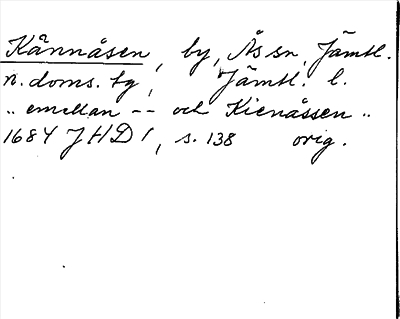 Kännåsen, by, Ås sn, Jämtl.
n. doms. tg, Jämtl. l.
„ emellan -- och Kienåssen „
1684 JHD 1, s. 138 orig.